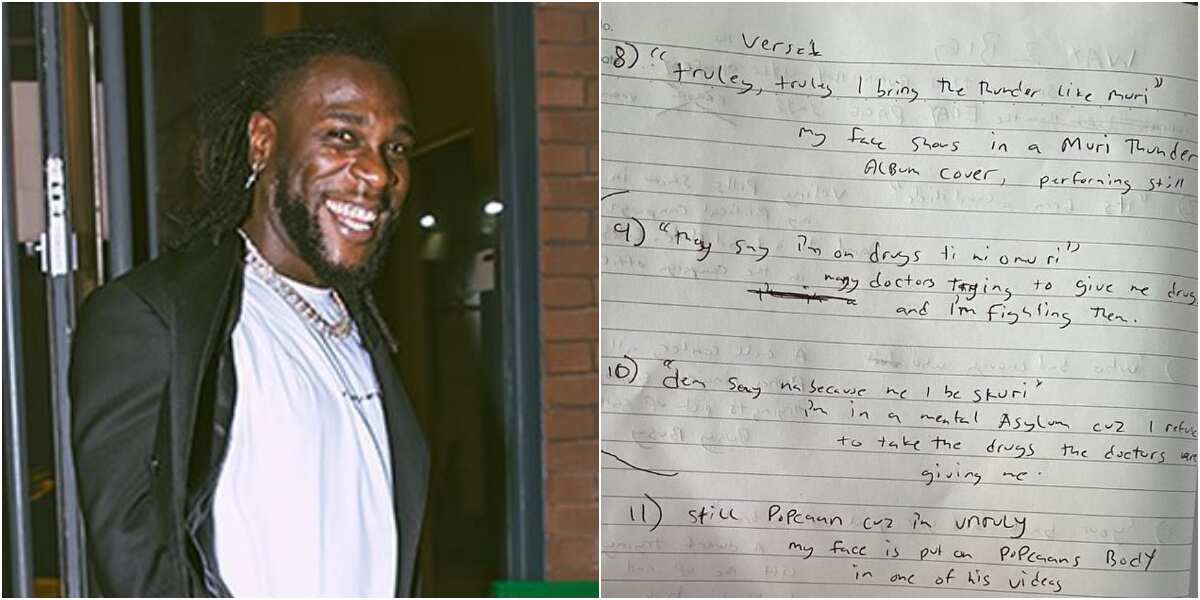 Verse 1
8) "truley, truley I bring the thunder like muri"
my face shows in a Muri Thunder
ALBum cover, performing still
9) "they say I'm on drugs ti ni omuri"
many doctors trying to give me drug
and I'm fighting them.
10) "dem say na because me I be skuri"
I'm in a mental Asylum cuz I refuse
to take the drugs the doctors are
giving me.
11) still PoPcaan cuz im unruly
my face is put on PoPcaans Body
in one of his videos